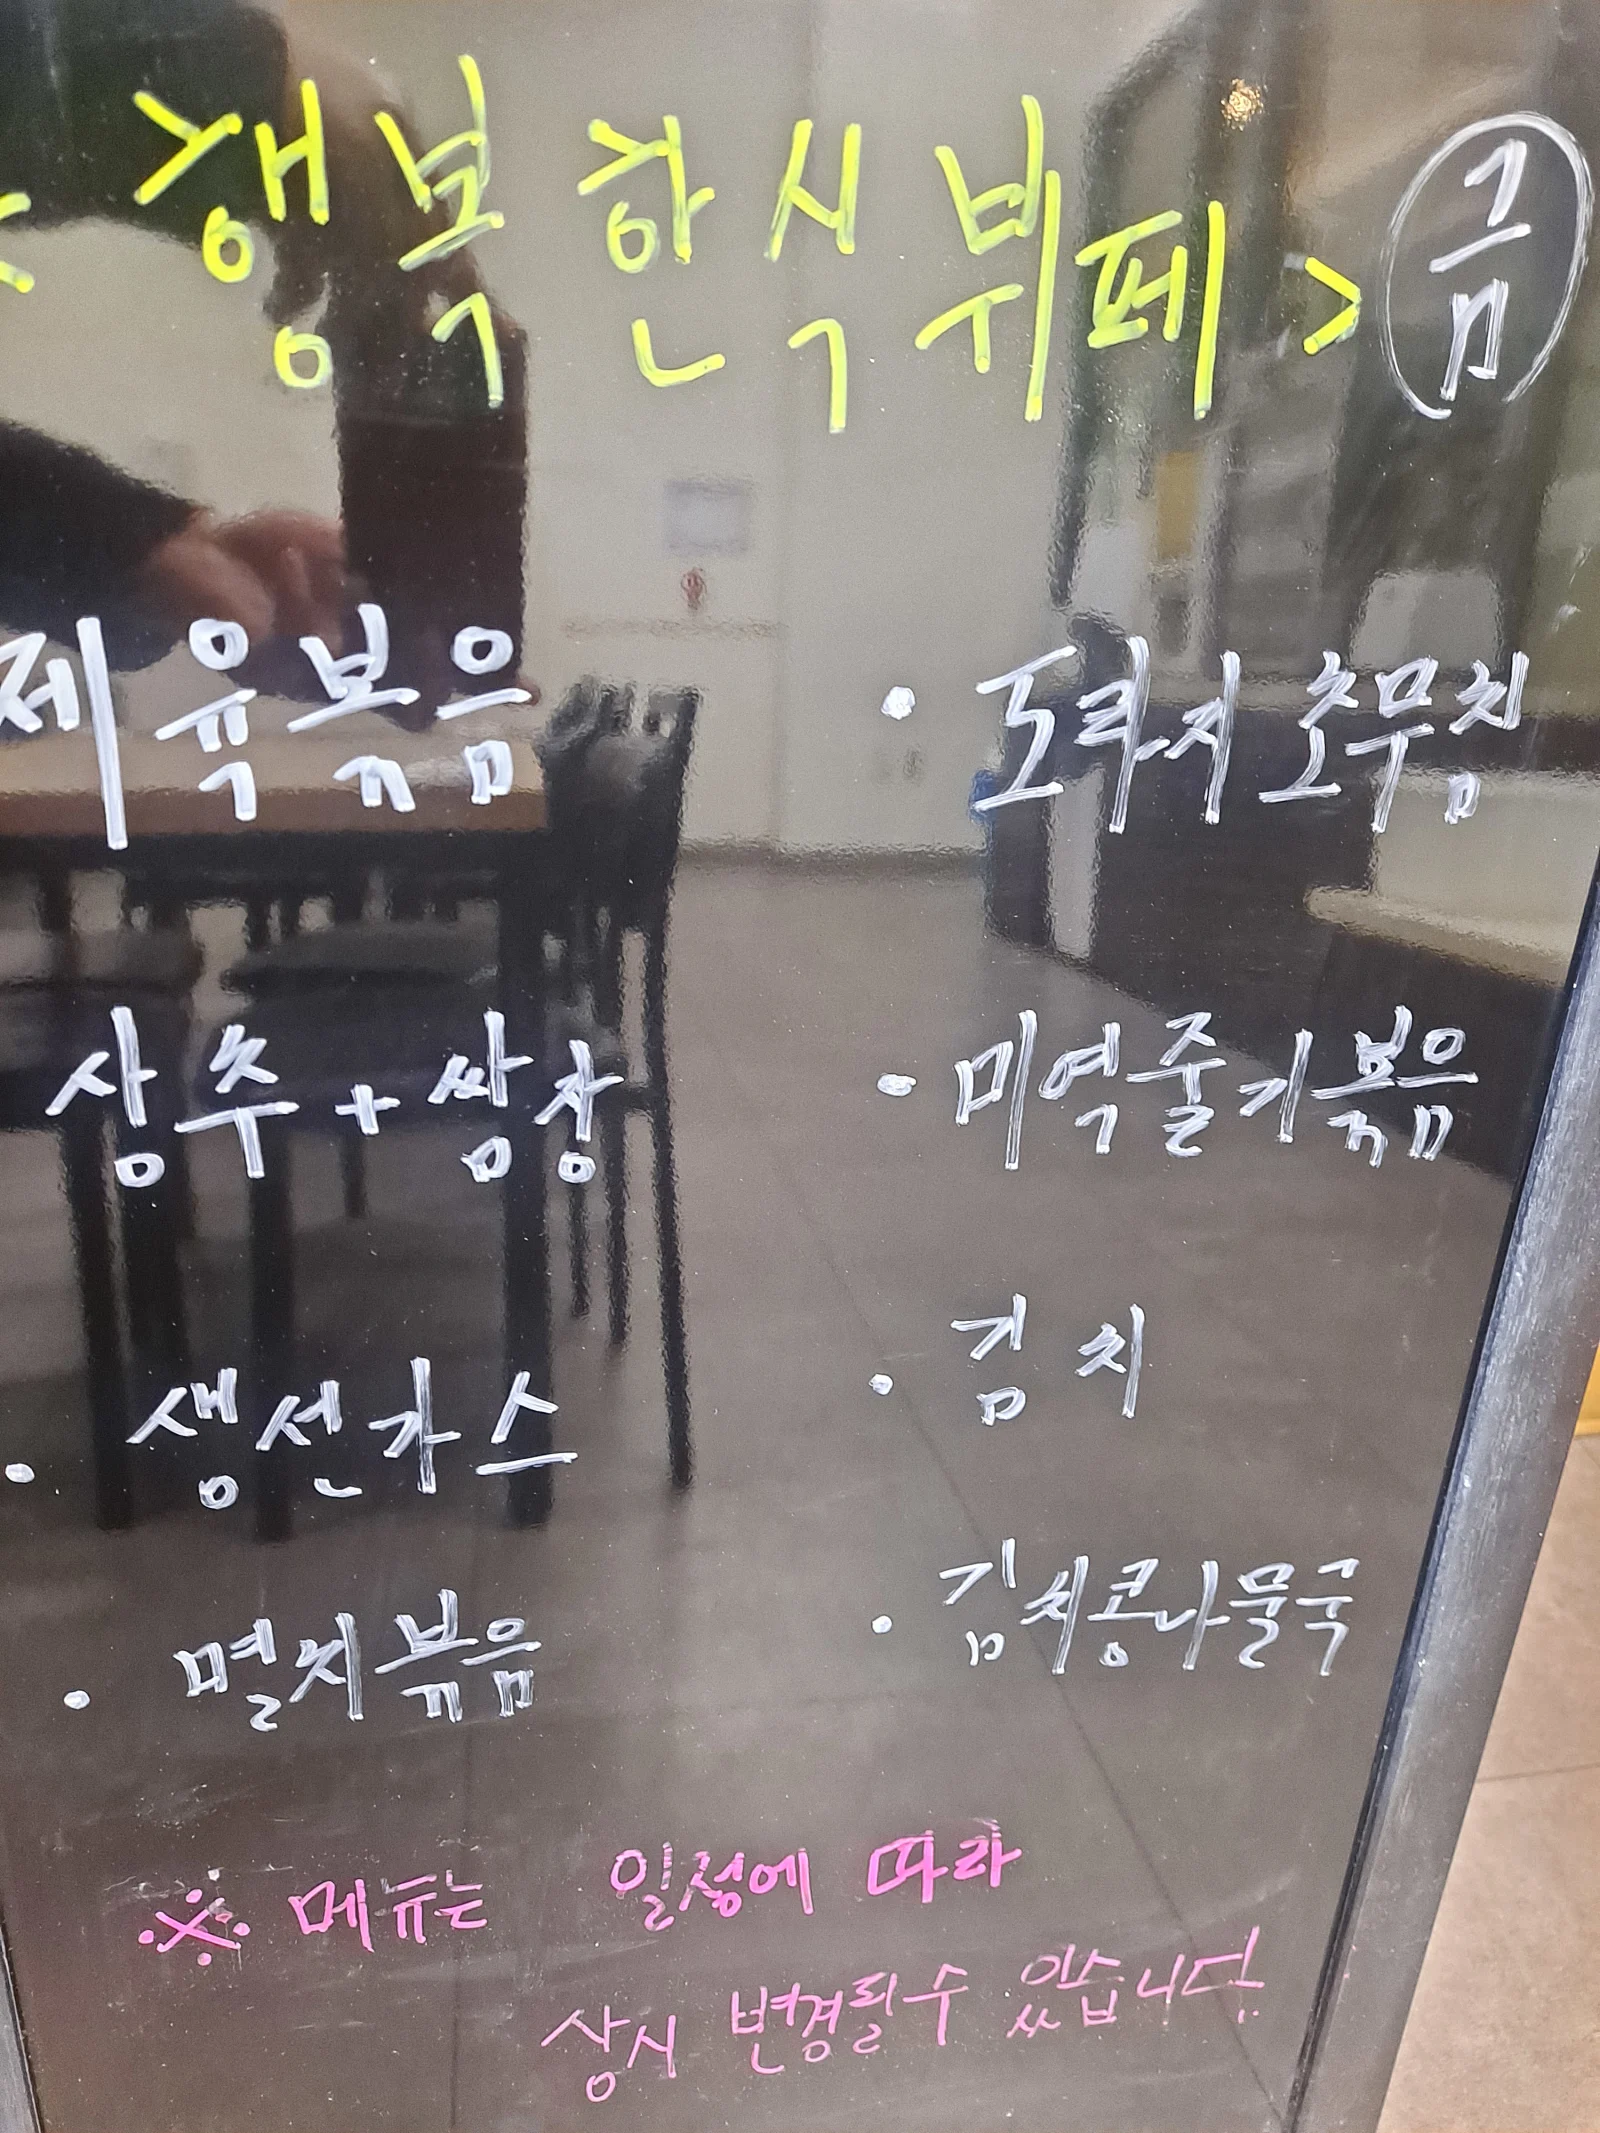 < 행복 한식 뷔페 > 금
제육볶음
· 도라지 초무침
상추 + 쌈장
· 미역줄기볶음
· 생선가스
· 김치
· 멸치볶음
· 김치콩나물국
※ 메뉴는 일정에 따라
상시 변경될수 있습니다.